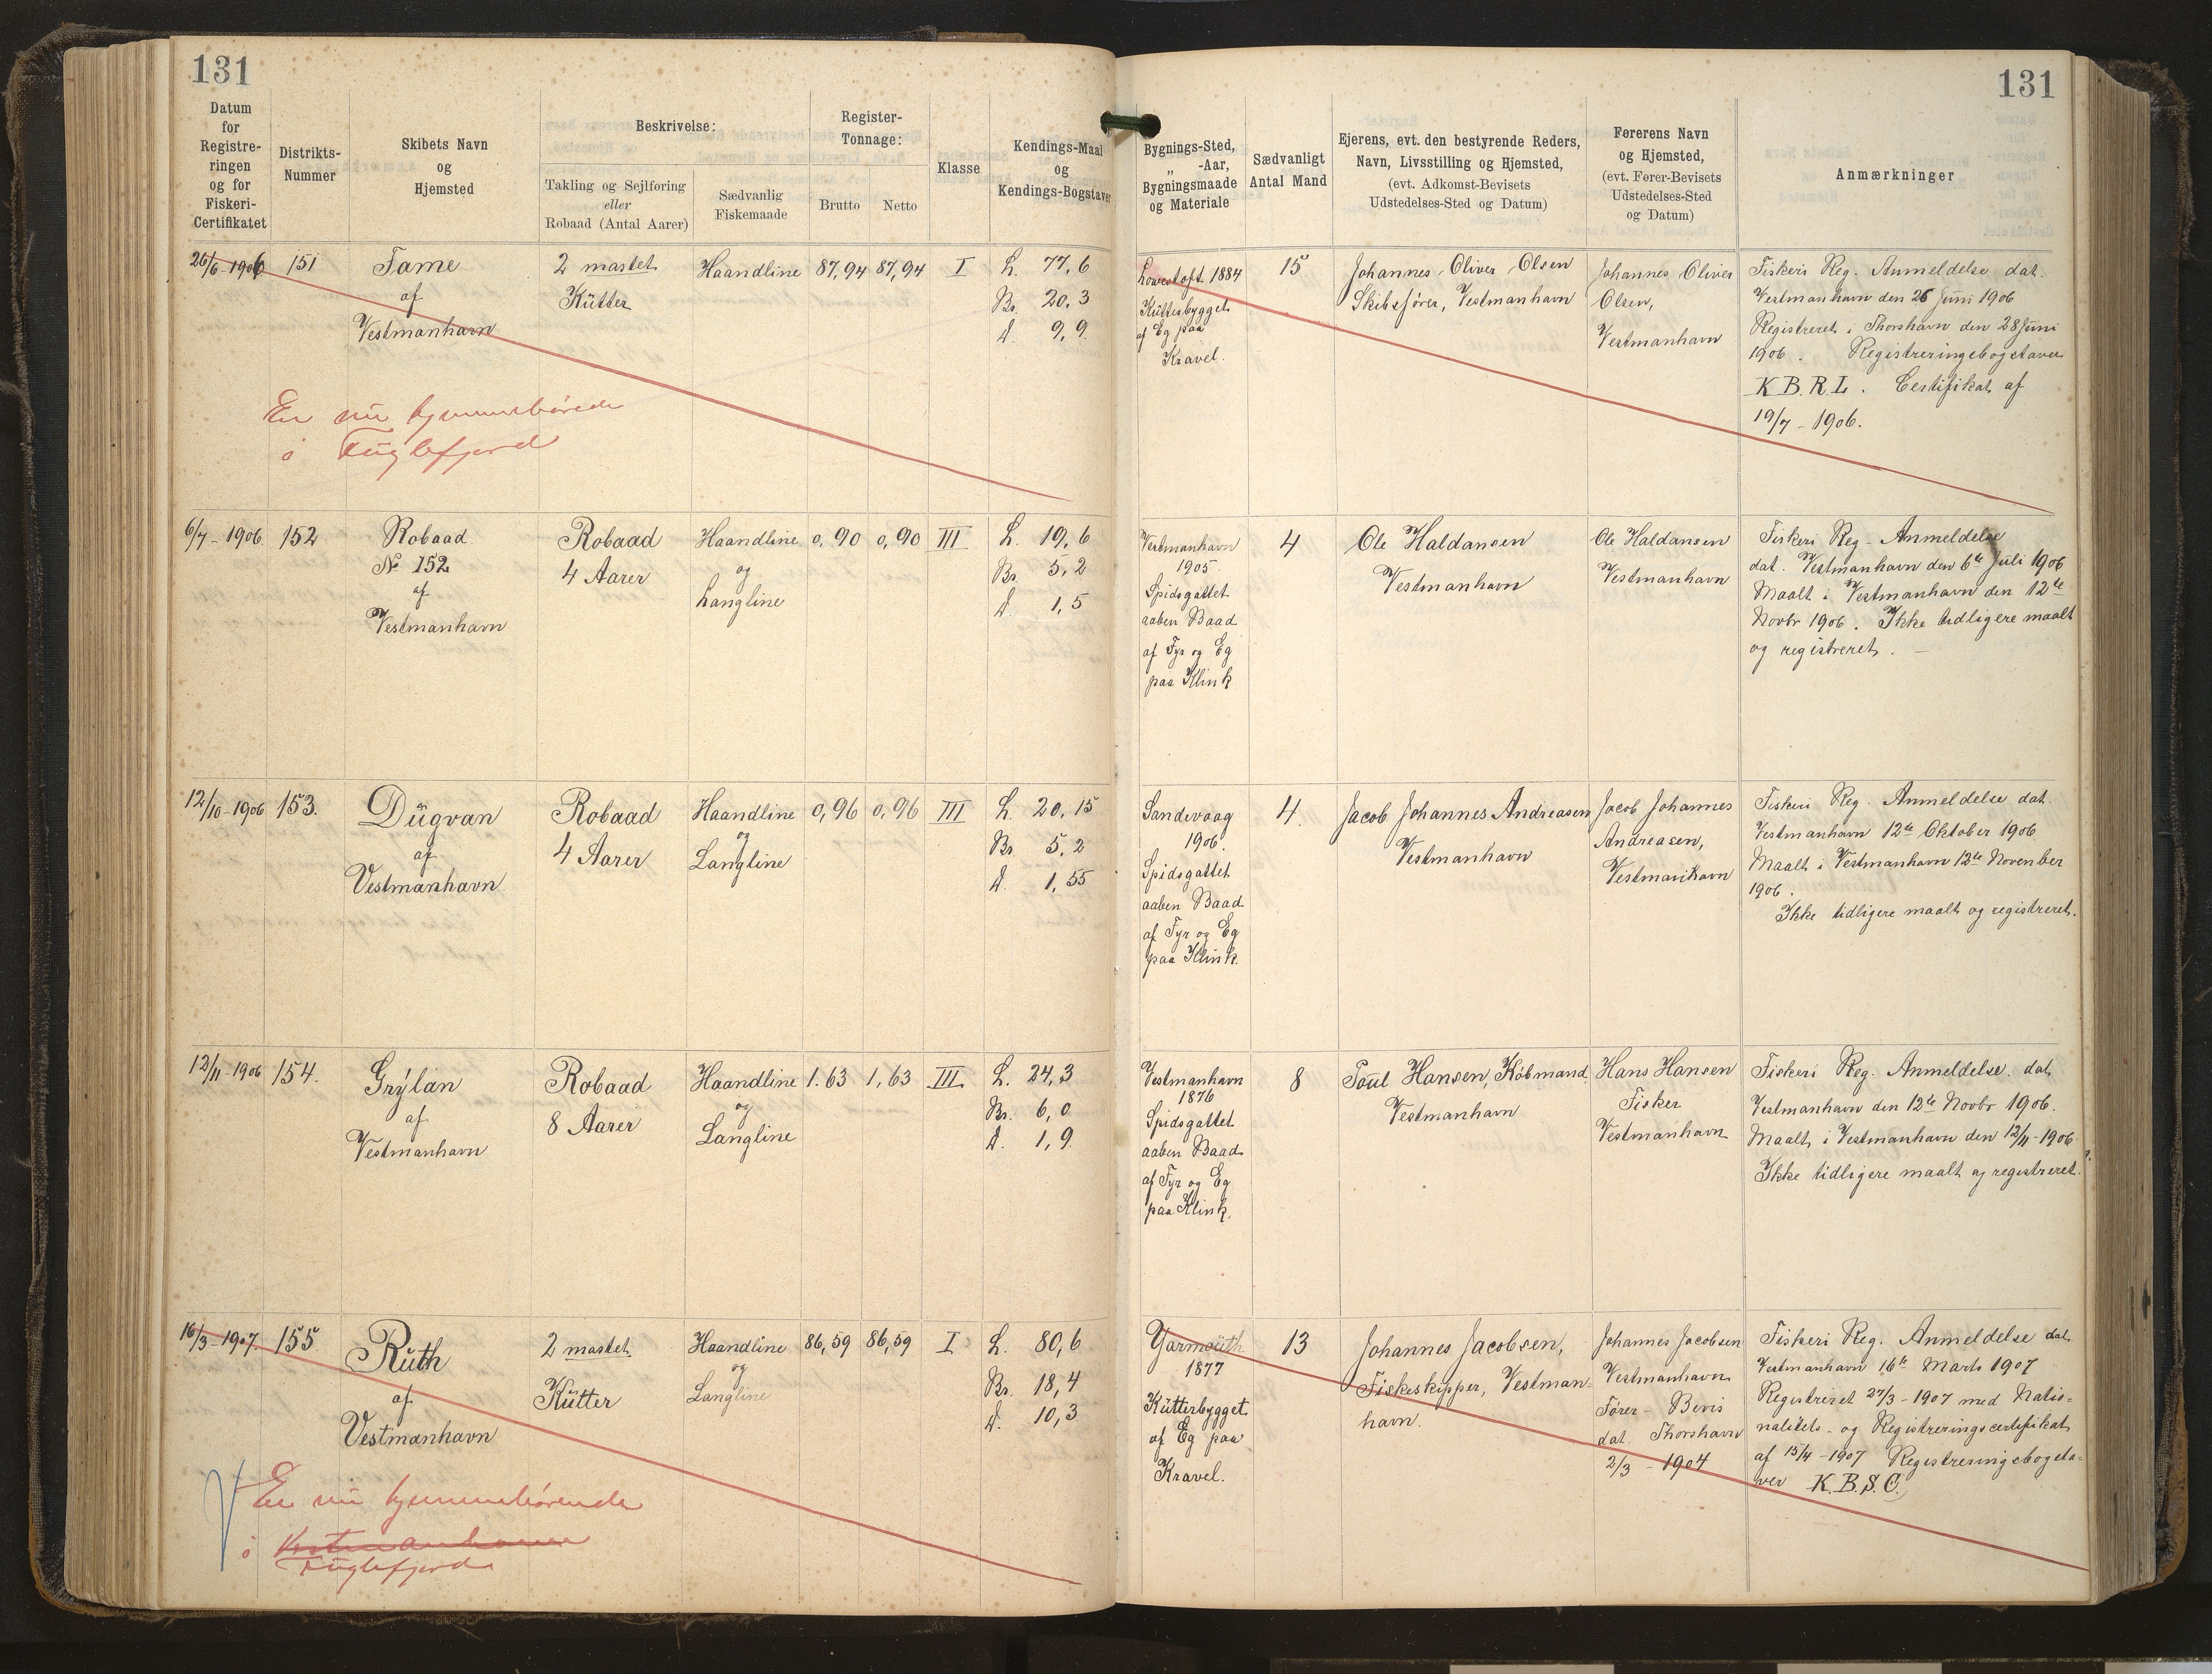 131
131
Datum
for
Registre-
ringen
og for
Fiskeri-
Certifikatet
Distrikts-
Nummer
Skibets Navn
og
Hjemsted
Beskrivelse:
Takling og Sejlføring
eller
Robaad (Antal Aarer)
Sædvanlig
Fiskemaade
Register-
Tonnage:
Brutto
Netto
Klasse
Kendings-Maal
og
Kendings-Bogstaver
Bygnings-Sted,
„ -Aar,
Bygningsmaade
og Materiale
Sædvanligt
Antal Mand
Ejerens, evt. den bestyrende Reders,
Navn, Livsstilling og Hjemsted,
(evt. Adkomst-Bevisets
Udstedelses-Sted og Datum)
Førerens Navn
og Hjemsted,
(evt. Fører-Bevisets
Udstedelses-Sted
og Datum)
Anmærkninger
26/6-1906
151
Fame
af
Vestmanhavn
2 mastet
Kütter
Haandline
87,94
87,94
I
L. 77,6
Br. 20,3
D. 9,9
Lowestoft 1884
Kütterbygget
af Eg paa
Kravel.
15
Johannes Oliver Olsen
Skibsfører, Vestmanhavn
Johannes Oliver
Olsen,
Vestmanhavn
Fiskeri Reg. Anmeldelse dat.
Vestmanhavn den 26 Juni 1906
Registreret i Thorshavn den 28 Juni
1906. Registreringsbogstaver
K.B.R.L. Certifikat af
19/7-1906.
Er nu hjemmehørende
i Fuglefjord
6/7-1906
152
Robaad
No 152
af
Vestmanhavn
Robaad
4 Aarer
Haandline
og
Langline
0,90
0,90
III
L. 19,6
Br. 5,2
D. 1,5
Vestmanhavn
1905.
Spidsgattet
aaben Baad
af Fyr og Eg
paa Klink
4
Ole Haldansen
Vestmanhavn
Ole Haldansen
Vestmanhavn
Fiskeri Reg - Anmeldelse
dat. Vestmanhavn den 6te Juli 1906
Maalt i Vestmanhavn den 12te
Novbr 1906. Ikke tidligere maalt
og registreret. -
12/10-1906
153.
Dügvan
af
Vestmanhavn
Robaad
4 Aarer
Haandline
og
Langline
0,96
0,96
III
L. 20,15
Br. 5,2
D. 1,55
Sandevaag
1906.
Spidsgattet
aaben Baad
af Fyr og Eg
paa Klink.
4.
Jacob Johannes Andreasen
Vestmanhavn
Jacob Johannes
Andreasen,
Vestmanhavn
Fiskeri Reg. Anmeldelse dat.
Vestmanhavn 12te Oktober 1906
Maalt i Vestmanhavn 12te November
1906.
Ikke tidligere maalt og registreret.
12/11-1906
154.
Grýlan
af
Vestmanhavn
Robaad
8 Aarer
Haandline
og
Langline
1.63
1,63
III
L. 24,3
Br. 6,0
D. 1,9
Vestmanhavn
1876
Spidsgattet
aaben Baad
af Fyr og Eg
paa Klink.
8
Poul Hansen, Købmand
Vestmanhavn
Hans Hansen
Fisker
Vestmanhavn
Fiskeri Reg. Anmeldelse. dat
Vestmanhavn den 12te Novbr 1906.
Maalt i Vestmanhavn den 12/11-1906
Ikke tidligere maalt og registreret.
16/3-1907
155
Rüth
af
Vestmanhavn
2 mastet
Kütter
Haandline
og
Langline
86,59
86,59
I
L. 80,6
Br. 18,4
D. 10,3
Yarmoüth
1877
Kütterbygget
af Eg paa
Kravel.
13
Johannes Jacobsen,
Fiskeskipper, Vestman-
havn.
Johannes Jacobsen
Vestmanhavn
Fører - Bevis
dat. Thorshavn
2/3 - 1904
Fiskeri Reg. Anmeldelse dat
Vestmanhavn 16te Marts 1907
Registreret 27/3-1907 med Natio-
nalitets- og Registreringscertifikat
af 15/4-1907 Registreringsbogsta-
ver K.B.S.C.
Er nu hjemmehørende
i Vestmanhavn
Fuglefjord